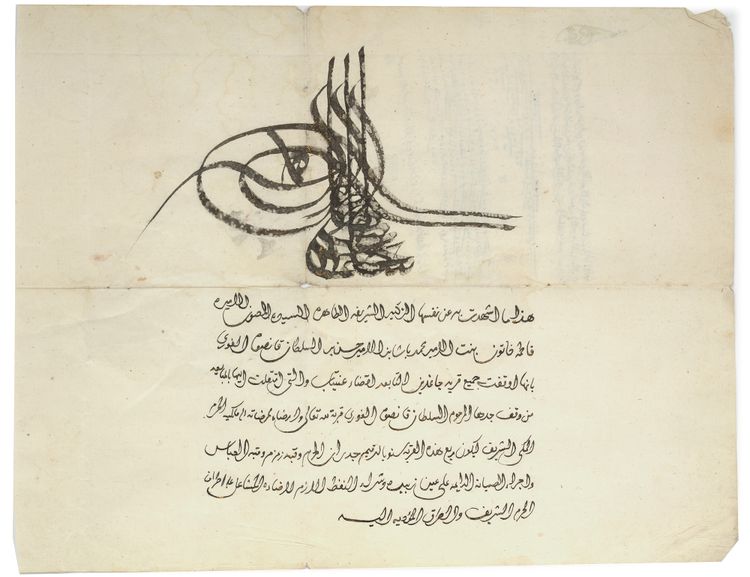 هذا ما اشهدت به عن نفسها الزكية الشريفة الطاهرة السيدة المصونة الاميرة
فاطمة خاتون بنت الامير محمد باشا بن الامير حسن بن السلطان قانصوه الغوري
بانها اوقفت جميع قرية جاغدين التابعة لقضاء عنتاب والتي انتقلت اليها
من وقف جدها المرحوم السلطان قانصوه الغوري قربة لله تعالى وارضاء لمرضاته الحرم
المكي الشريف ليكون ريع هذه القرية سنويا لترميم جدران الحرم وقبة زمزم وقبة العباس
واجراء الصيانة الدايمة على عين زبيدة وشراء النفط اللازم لاضاءة المشاعل في اطراف
الحرم الشريف والطرق المؤدية اليه